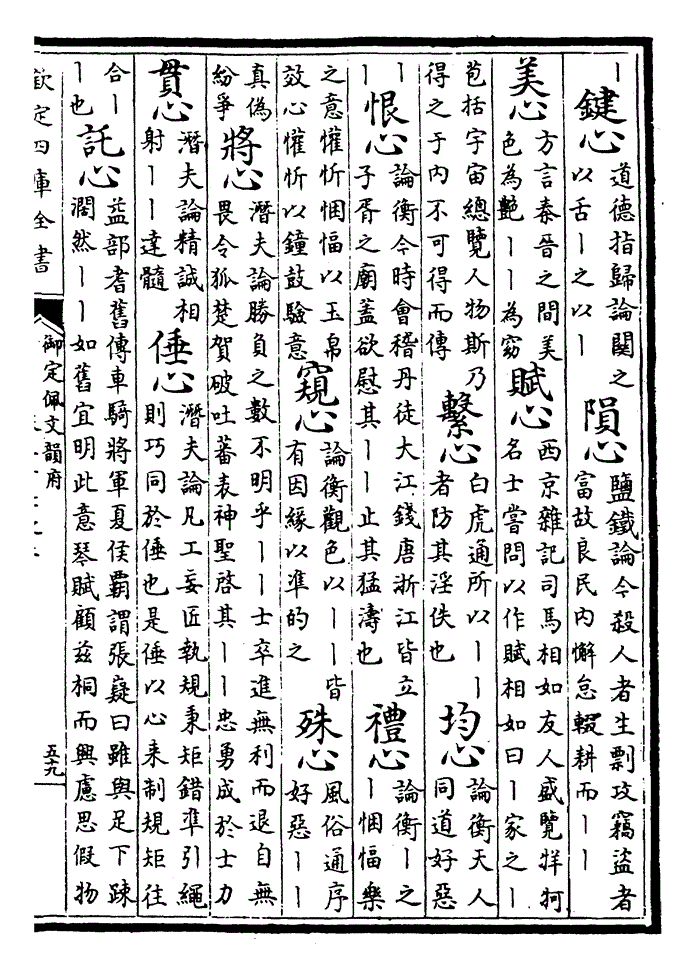 丨丨鍵心道德指歸論闗之以舌丨之以丨隕心鹽鐵論今殺人者生剽攻竊盜者富故良民内懈怠輟耕而丨丨
美心方言秦晉之間美色為艷丨丨為窈賦心西京雜記司馬相如友人盛覽牂牁名士嘗問以作賦相如曰丨家之丨
苞括宇宙總覽人物斯乃得之于内不可得而傳繫心白虎通所以丨丨者防其淫佚也均心論衡天人同道好惡
丨丨恨心論衡今時會稽丹徒大江錢唐浙江皆立子胥之廟蓋欲慰其丨丨止其猛濤也禮心論衡丨之丨悃愊樂
之意懽忻悃愊以玉帛效心懽忻以鐘鼓驗意窺心論衡觀色以丨丨皆有因緣以準的之殊心風俗通序好惡丨丨
真偽紛爭將心潛夫論勝負之數不明乎丨丨士卒進無利而退自無畏令狐楚賀破吐蕃表神聖啓其丨丨忠勇成於士力
貫心潛夫論精誠相射丨丨達髓倕心潛夫論凡工妄匠執規秉矩錯準引繩則巧同於倕也是倕以心来制規矩往
合丨丨也託心益部耆舊傳車騎將軍夏侯霸謂張嶷曰雖與足下踈濶然丨丨如舊宜明此意琴賦顧兹桐而興慮思假物
欽定四庫全書
御定佩文韻府
五十九